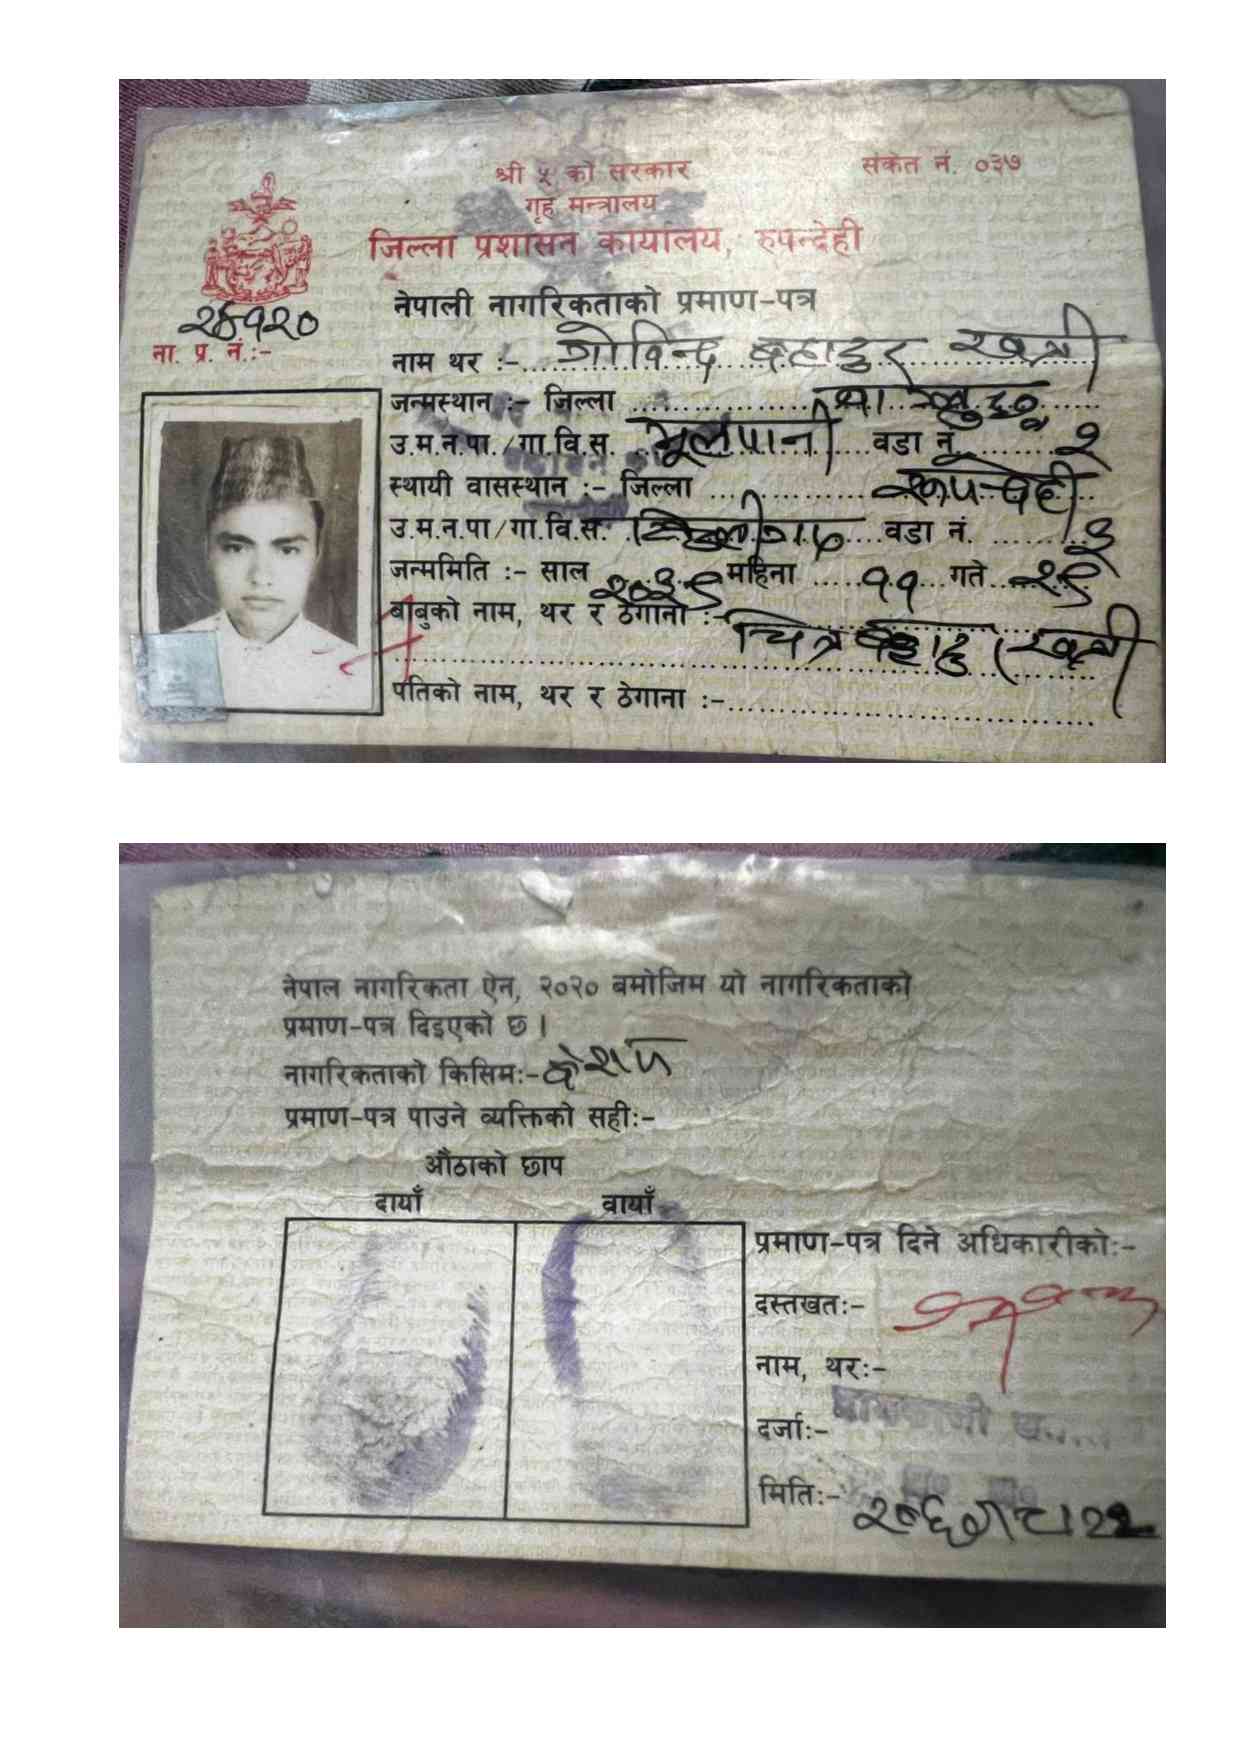 श्री ५ को सरकार
संकेत नं. ०३७
गृह मन्त्रालय
जिल्ला प्रशासन कार्यालय, रुपन्देही
नेपाली नागरिकताको प्रमाण-पत्र
ना. प्र. नं.:-
नाम थर :- गोविन्द बहादुर खत्री
जन्मस्थान :- जिल्ला
उ.म.न.पा./गा.वि.स. मूलपानी वडा नं. २
स्थायी वासस्थान :- जिल्ला रूपन्देही
उ.म.न.पा/गा.वि.स. वडा नं. ३
जन्ममिति :- साल २०३९ महिना ११ गते २९
बाबुको नाम, थर र ठेगाना :-
चित्र बहादुर खत्री
पतिको नाम, थर र ठेगाना :-
नेपाल नागरिकता ऐन, २०२० बमोजिम यो नागरिकताको
प्रमाण-पत्र दिइएको छ ।
नागरिकताको किसिम:- वंशज
प्रमाण-पत्र पाउने व्यक्तिको सही:-
औंठाको छाप
दायाँ वायाँ
प्रमाण-पत्र दिने अधिकारीको:-
दस्तखत:-
नाम, थर:-
दर्जा:-
मिति:-